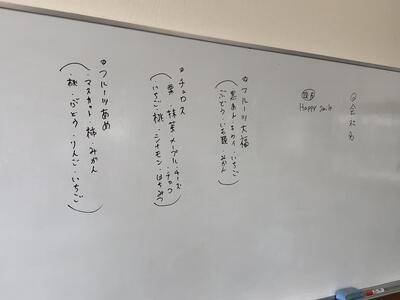 ◎会社名
Happy smile
☆フルーツ大福
(黒あん・キウイ・いちご
ぶどう・みかん)
☆チュロス
(栗・抹茶・メープル・チーズ・チョコ
いちご・桃・シナモン・はちみつ)
☆フルーツあめ
(・マスカット・柿・みかん
・桃・ぶどう・りんご・いちご)